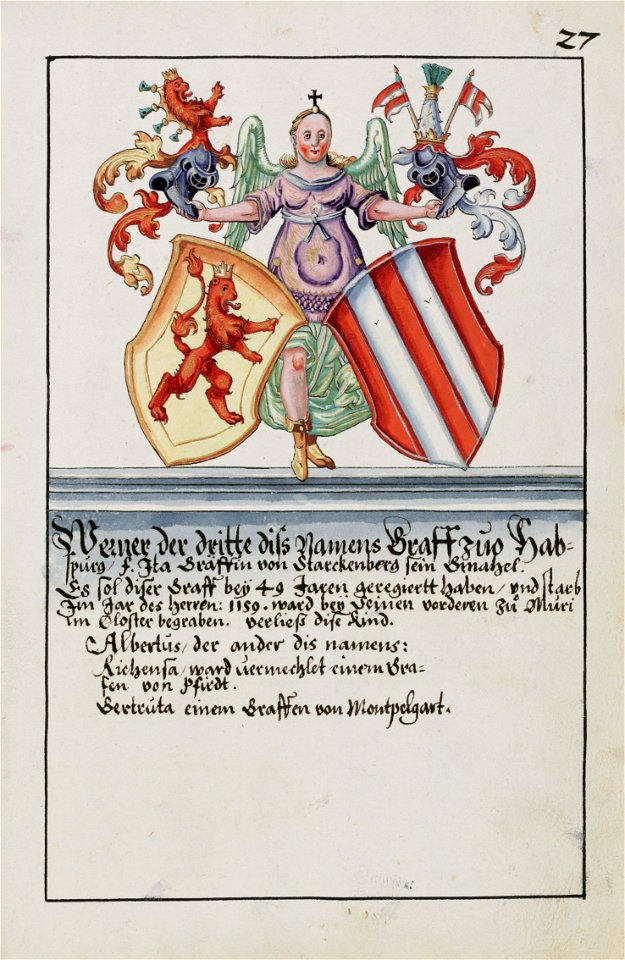 27
Werner der dritte diss Namens Graff zuo Hab-
spurg / F. Ita Gräffin von Starckenberg sein Gmahel.
Es sol diser Graff bey 49 Jaren geregiertt haben / vnd starb
Im Jar des Herren: 1159. ward bey Seinen vorderen zů Muri
im Closter begraben. verließ dise Kind.
Albertus / der ander dis namens:
Richensa / ward vermechlet einem Gra-
fen von Pfirdt.
Gertruta einem Graffen von Montpelgart.